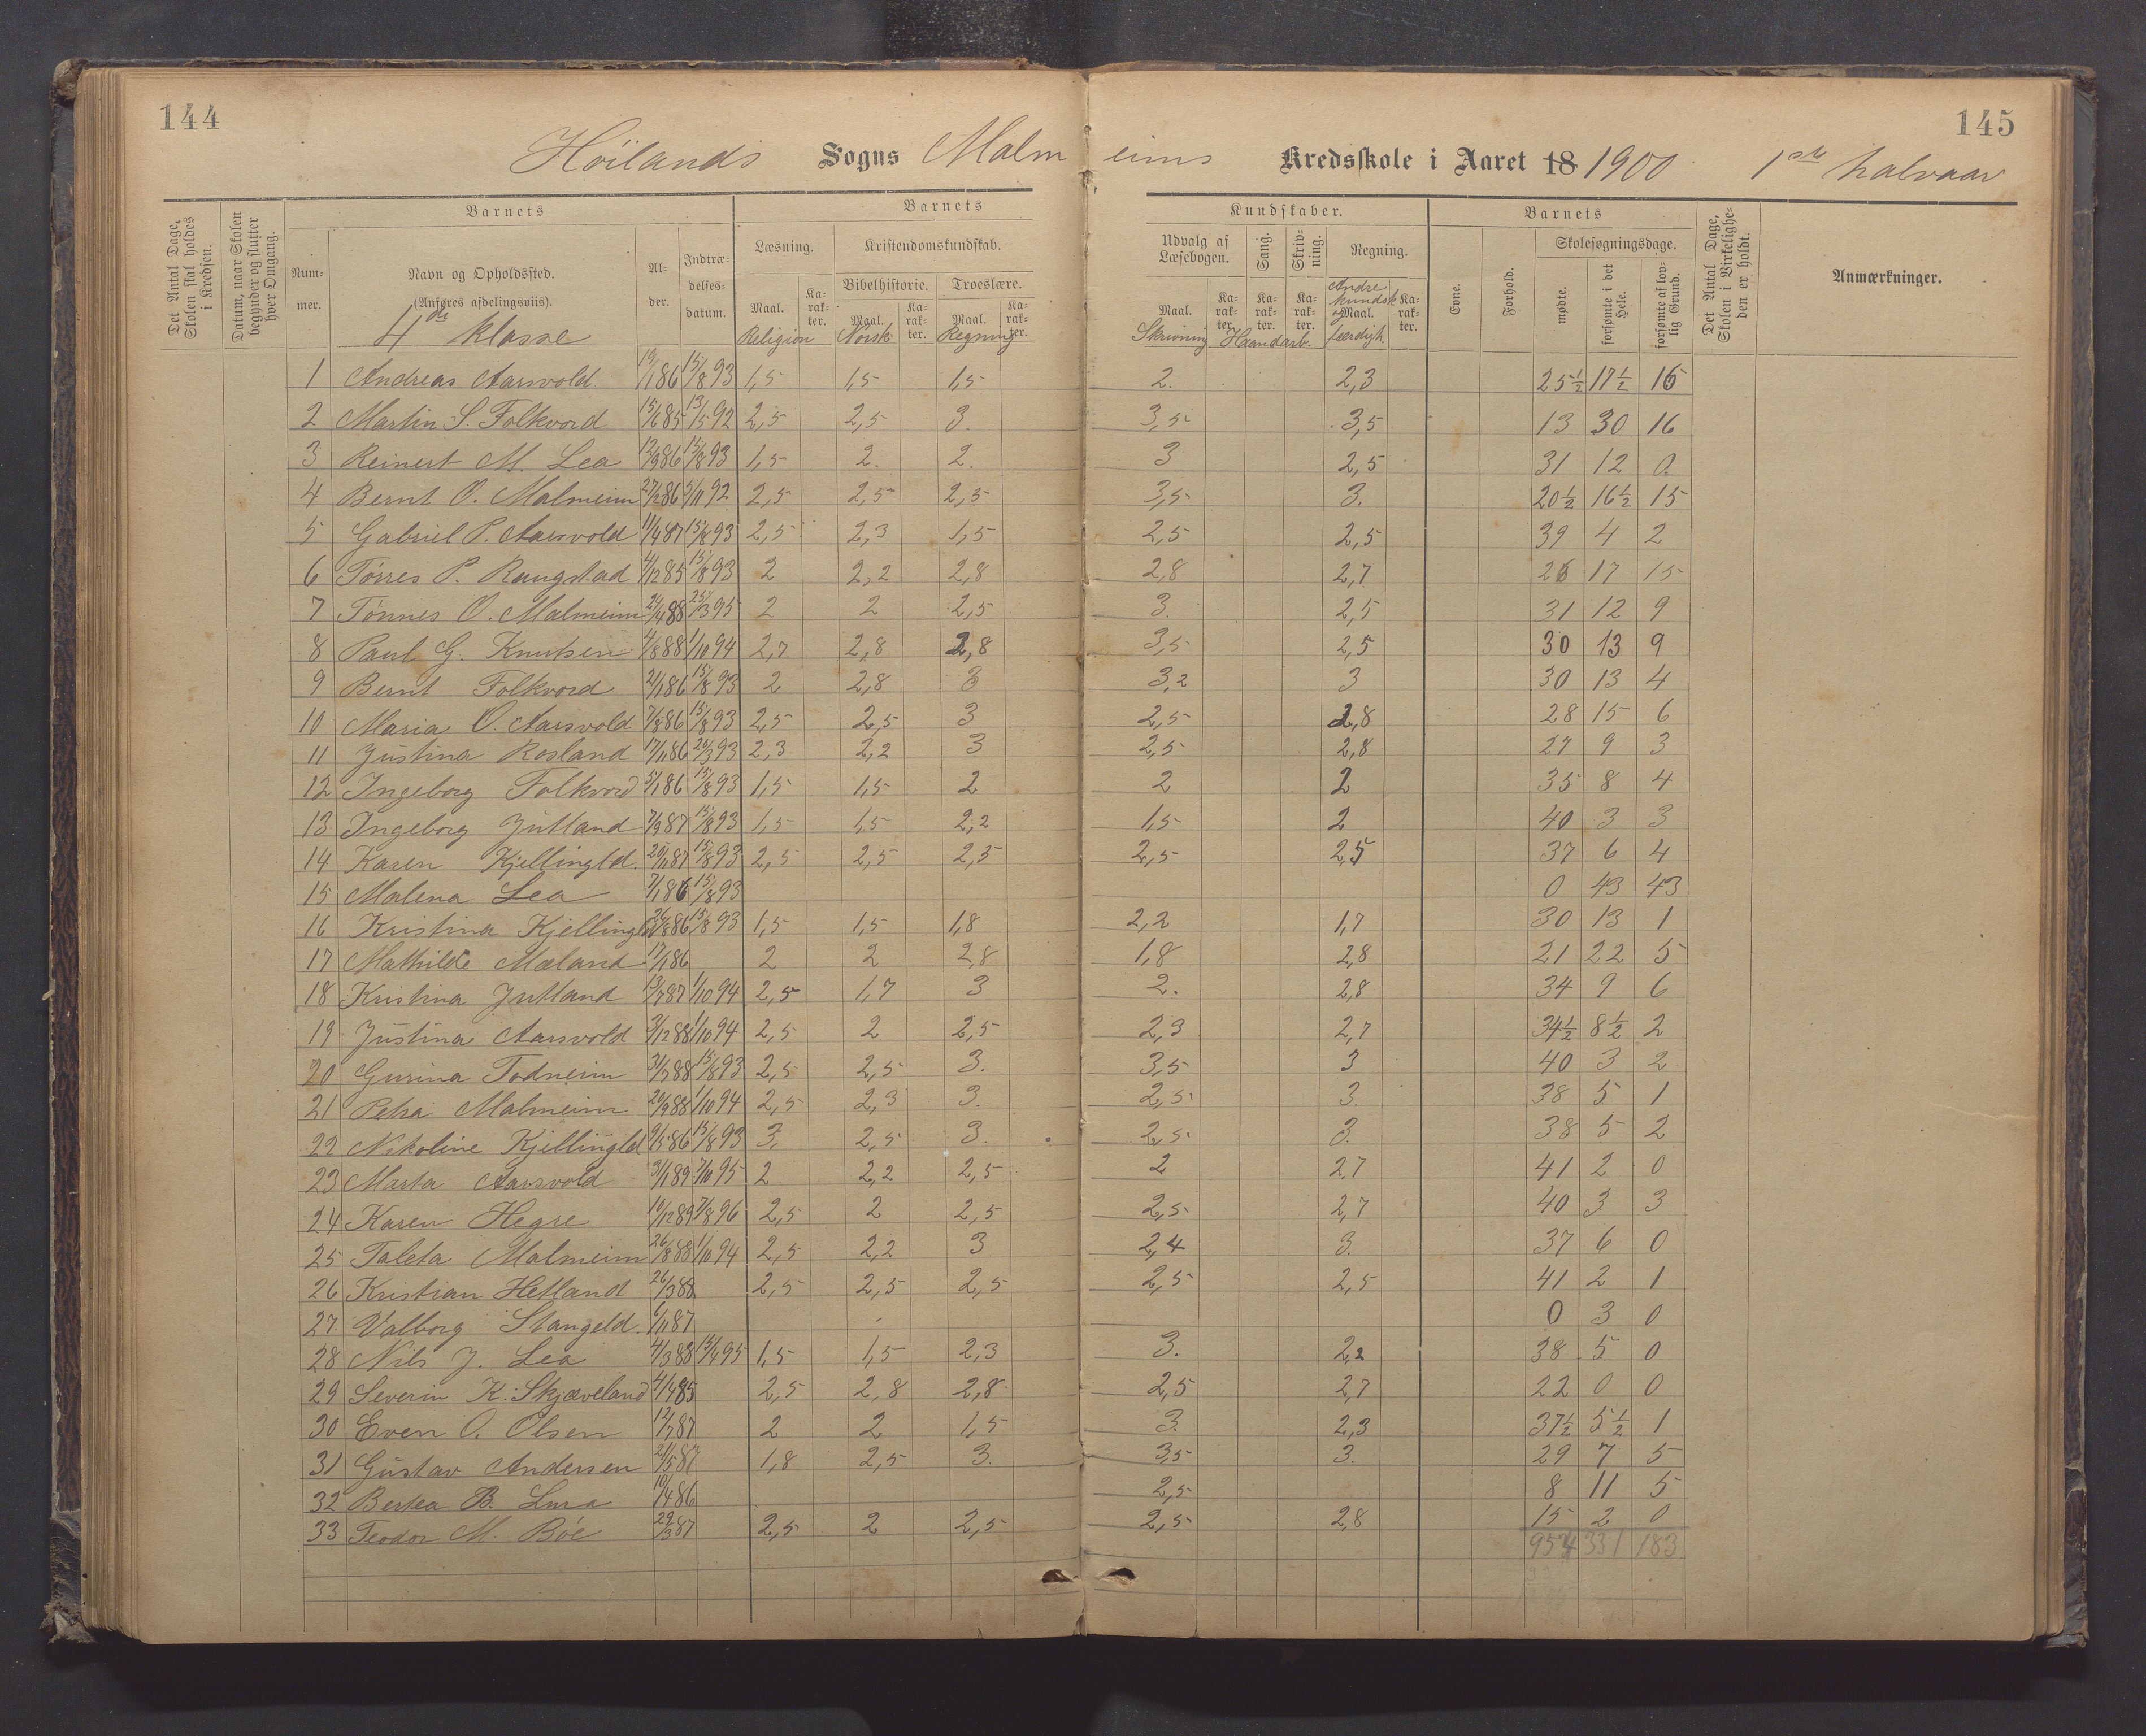 144
145
Høilands Sogns Malmeims Kredsskole i Aaret 18 1900 1ste halvaar
Det Antal Dage, Skolen skal holdes i Kredsen.
Datum, naar Skolen begynder og slutter hver Omgang.
Barnets
Barnets
Kundskaber.
Barnets
Det Antal Dage, Skolen i Virkeligheden er holdt.
Anmærkninger.
Nummer.
Navn og Opholdssted. (Anføres afdelingsviis).
Alder.
Indtrædelsesdatum.
Læsning.
Kristendomskundskab.
Udvalg af Læsebogen.
Sang.
Skrivning.
Regning.
Evne.
Forhold.
Skolesøgningsdage.
Bibelhistorie. Troeslære.
Maal. Karakter. Maal. Karakter. Maal. Karakter. Maal. Karakter. Karakter. Karakter. Maal. Karakter.
mødte. forsømte i det Hele. forsømte af lovlig Grund.
4de klasse
Religion Norsk Regning Skrivning Haandarb. Andre kundsk. og færdigh.
1 Andreas Aarsvold 19/1 86 15/8 93 1,5 1,5 1,5 2. 2,3 25½ 17½ 16
2 Martin S. Folkvord 15/6 85 13/5 92 2,5 2,5 3. 3,5 3,5 13 30 16
3 Reinert M. Lea 12/9 86 15/8 93 1,5 2. 2. 3 2,5 31 12 0.
4 Bernt O. Malmeim 27/2 86 5/11 92 2,5 2,5 2,5 3,5 3. 20½ 16½ 15
5 Gabriel P. Aarsvold 11/4 87 15/8 93 2,5 2,3 1,5 2,5 2,5 39 4 2
6 Tørres P. Raugstad 4/12 85 15/8 93 2 2,2 2,8 2,8 2,7 26 17 15
7 Tønnes O. Malmeim 24/4 88 25/3 95 2 2 2,5 3. 2,5 31 12 9
8 Paul G. Knutsen 4/8 88 1/10 94 2,7 2,8 2,8 3,5 2,5 30 13 9
9 Bernt Folkvord 2/1 86 15/8 93 2 2,8 3 3,2 3 30 13 4
10 Maria O. Aarsvold 7/8 86 15/8 93 2,5 2,5 3 2,5 2,8 28 15 6
11 Justina Rosland 17/11 86 20/3 93 2,3 2,2 3 2,5 2,8 27 9 3
12 Ingeborg Folkvord 5/1 86 15/8 93 1,5 1,5 2 2 2 35 8 4
13 Ingeborg Jutland 7/9 87 15/8 93 1,5 1,5 2,2 1,5 2 40 3 3
14 Karen Kjellingld. 20/11 87 15/8 93 2,5 2,5 2,5 2,5 2,5 37 6 4
15 Malena Lea 7/1 86 15/8 93 0 43 43
16 Kristina Kjellingld 26/8 86 15/8 93 1,5 1,5 1,8 2,2 1,7 30 13 1
17 Mathilde Mæland 17/1 86 2 2 2,8 1,8 2,8 21 22 5
18 Kristina Jutland 13/7 87 1/10 94 2,5 1,7 3 2. 2,8 34 9 6
19 Justina Aarsvold 3/12 88 1/10 94 2,5 2 2,5 2,3 2,7 34½ 8½ 2
20 Gurina Todneim 31/7 88 15/8 93 2,5 2,5 3. 3,5 3 40 3 2
21 Petra Malmeim 20/9 88 1/10 94 2,5 2,3 3. 2,5 3. 38 5 1
22 Nikoline Kjellingld 9/5 86 15/8 93 3. 2,5 3. 2,5 3. 38 5 2
23 Marta Aarsvold 3/1 89 7/10 95 2 2,2 2,5 2 2,7 41 2 0
24 Karen Hegre 10/12 89 7/8 96 2,5 2 2,5 2,5 2,7 40 3 3
25 Taleta Malmeim 26/8 88 1/10 94 2,5 2,2 3 2,4 3. 37 6 0
26 Kristian Hetland 26/3 88 2,5 2,5 2,5 2,5 2,5 41 2 1
27 Valborg Stangeld. 6/11 87 0 3 0
28 Nils J. Lea 4/3 88 15/4 95 1,5 1,5 2,3 3. 2,2 38 5 0
29 Severin K. Skjæveland 4/4 85 2,5 2,8 2,8 2,5 2,7 22 0 0
30 Even O. Olsen 12/7 87 2 2 1,5 3. 2,3 37½ 5½ 1
31 Gustav Andersen 21/5 87 1,8 2,5 3. 3,5 3. 29 7 5
32 Bertea B. Lura 10/4 86 2,5 8 11 5
33 Teodor M. Bøe 29/3 87 2,5 2 2,5 2,5 2,8 15 2 0
954 331 183